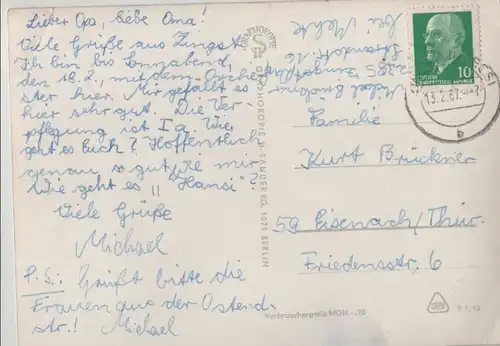 Lieber Opa, liebe Oma!
Viele Grüße aus Zingst.
Ich bin bis Sonnabend,
den 18.2., mit dem Orche-
ster hier. Mir gefällt es
hier sehr gut. Die Ver-
pflegung ist I a. Wie
geht es Euch? Hoffentlich
genau so gut, wie mir.
Wie geht es "Hansi"?
Viele Grüße
Michael
P.S.: Grüßt bitte die
Frauen aus der Ostend-
str.! Michael
Michael Brückner
2385 Zingst
Strandstr. 16
bei
PHOTOKOPIE H. SANDER KG, 1071 BERLIN
10
13.2.67
b
Familie
Kurt Brückner
59 Eisenach/Thür.
Friedensstr. 6
Verbraucherpreis MDN -,20